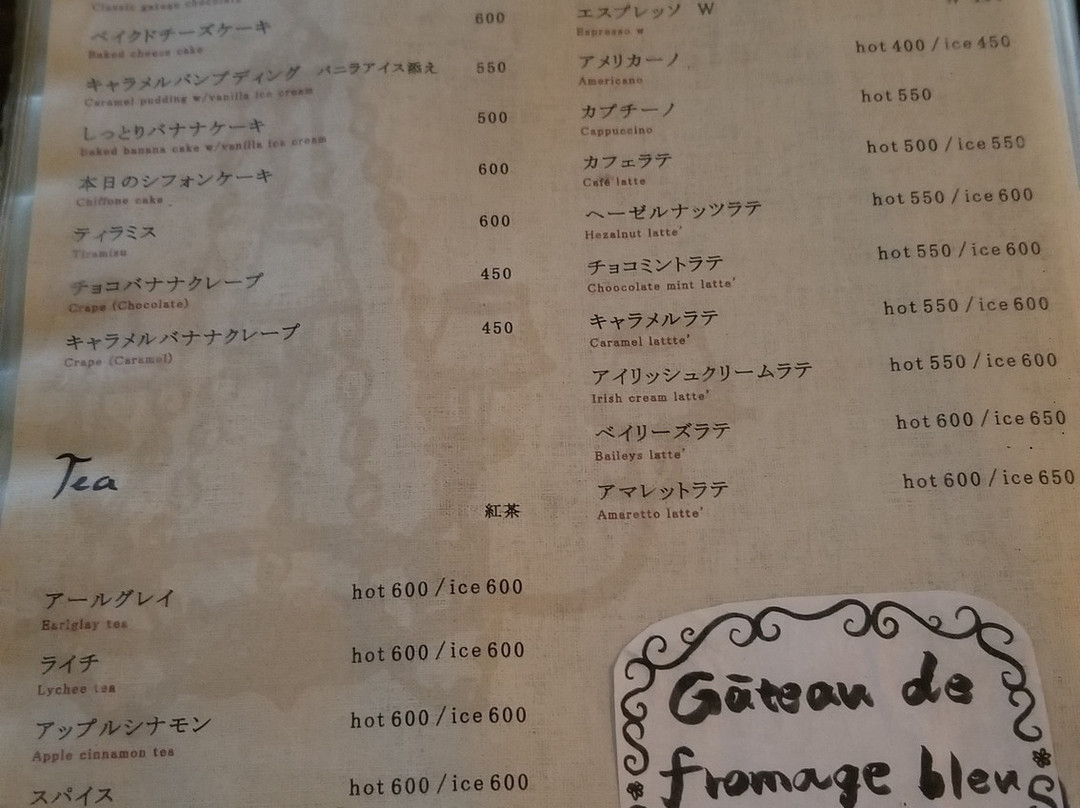 Classic gateau chocolate
ベイクドチーズケーキ 600
Baked cheese cake
キャラメルパンプディング バニラアイス添え 550
Caramel pudding w/vanilla ice cream
しっとりバナナケーキ 500
Baked banana cake w/vanilla ice cream
本日のシフォンケーキ 600
Chiffone cake
ティラミス 600
Tiramisu
チョコバナナクレープ 450
Crape (Chocolate)
キャラメルバナナクレープ 450
Crape (Caramel)
Tea
紅茶
アールグレイ hot 600 / ice 600
Earlglay tea
ライチ hot 600 / ice 600
Lychee tea
アップルシナモン hot 600 / ice 600
Apple cinnamon tea
スパイス hot 600 / ice 600
エスプレッソ W
Espresso w
アメリカーノ hot 400 / ice 450
Americano
カプチーノ hot 550
Cappuccino
カフェラテ hot 500 / ice 550
Cafe latte
ヘーゼルナッツラテ hot 550 / ice 600
Hezalnut latte'
チョコミントラテ hot 550 / ice 600
Choocolate mint latte'
キャラメルラテ hot 550 / ice 600
Caramel lattte'
アイリッシュクリームラテ hot 550 / ice 600
Irish cream latte'
ベイリーズラテ hot 600 / ice 650
Baileys latte'
アマレットラテ hot 600 / ice 650
Amaretto latte'
Gâteau de
fromage bleu